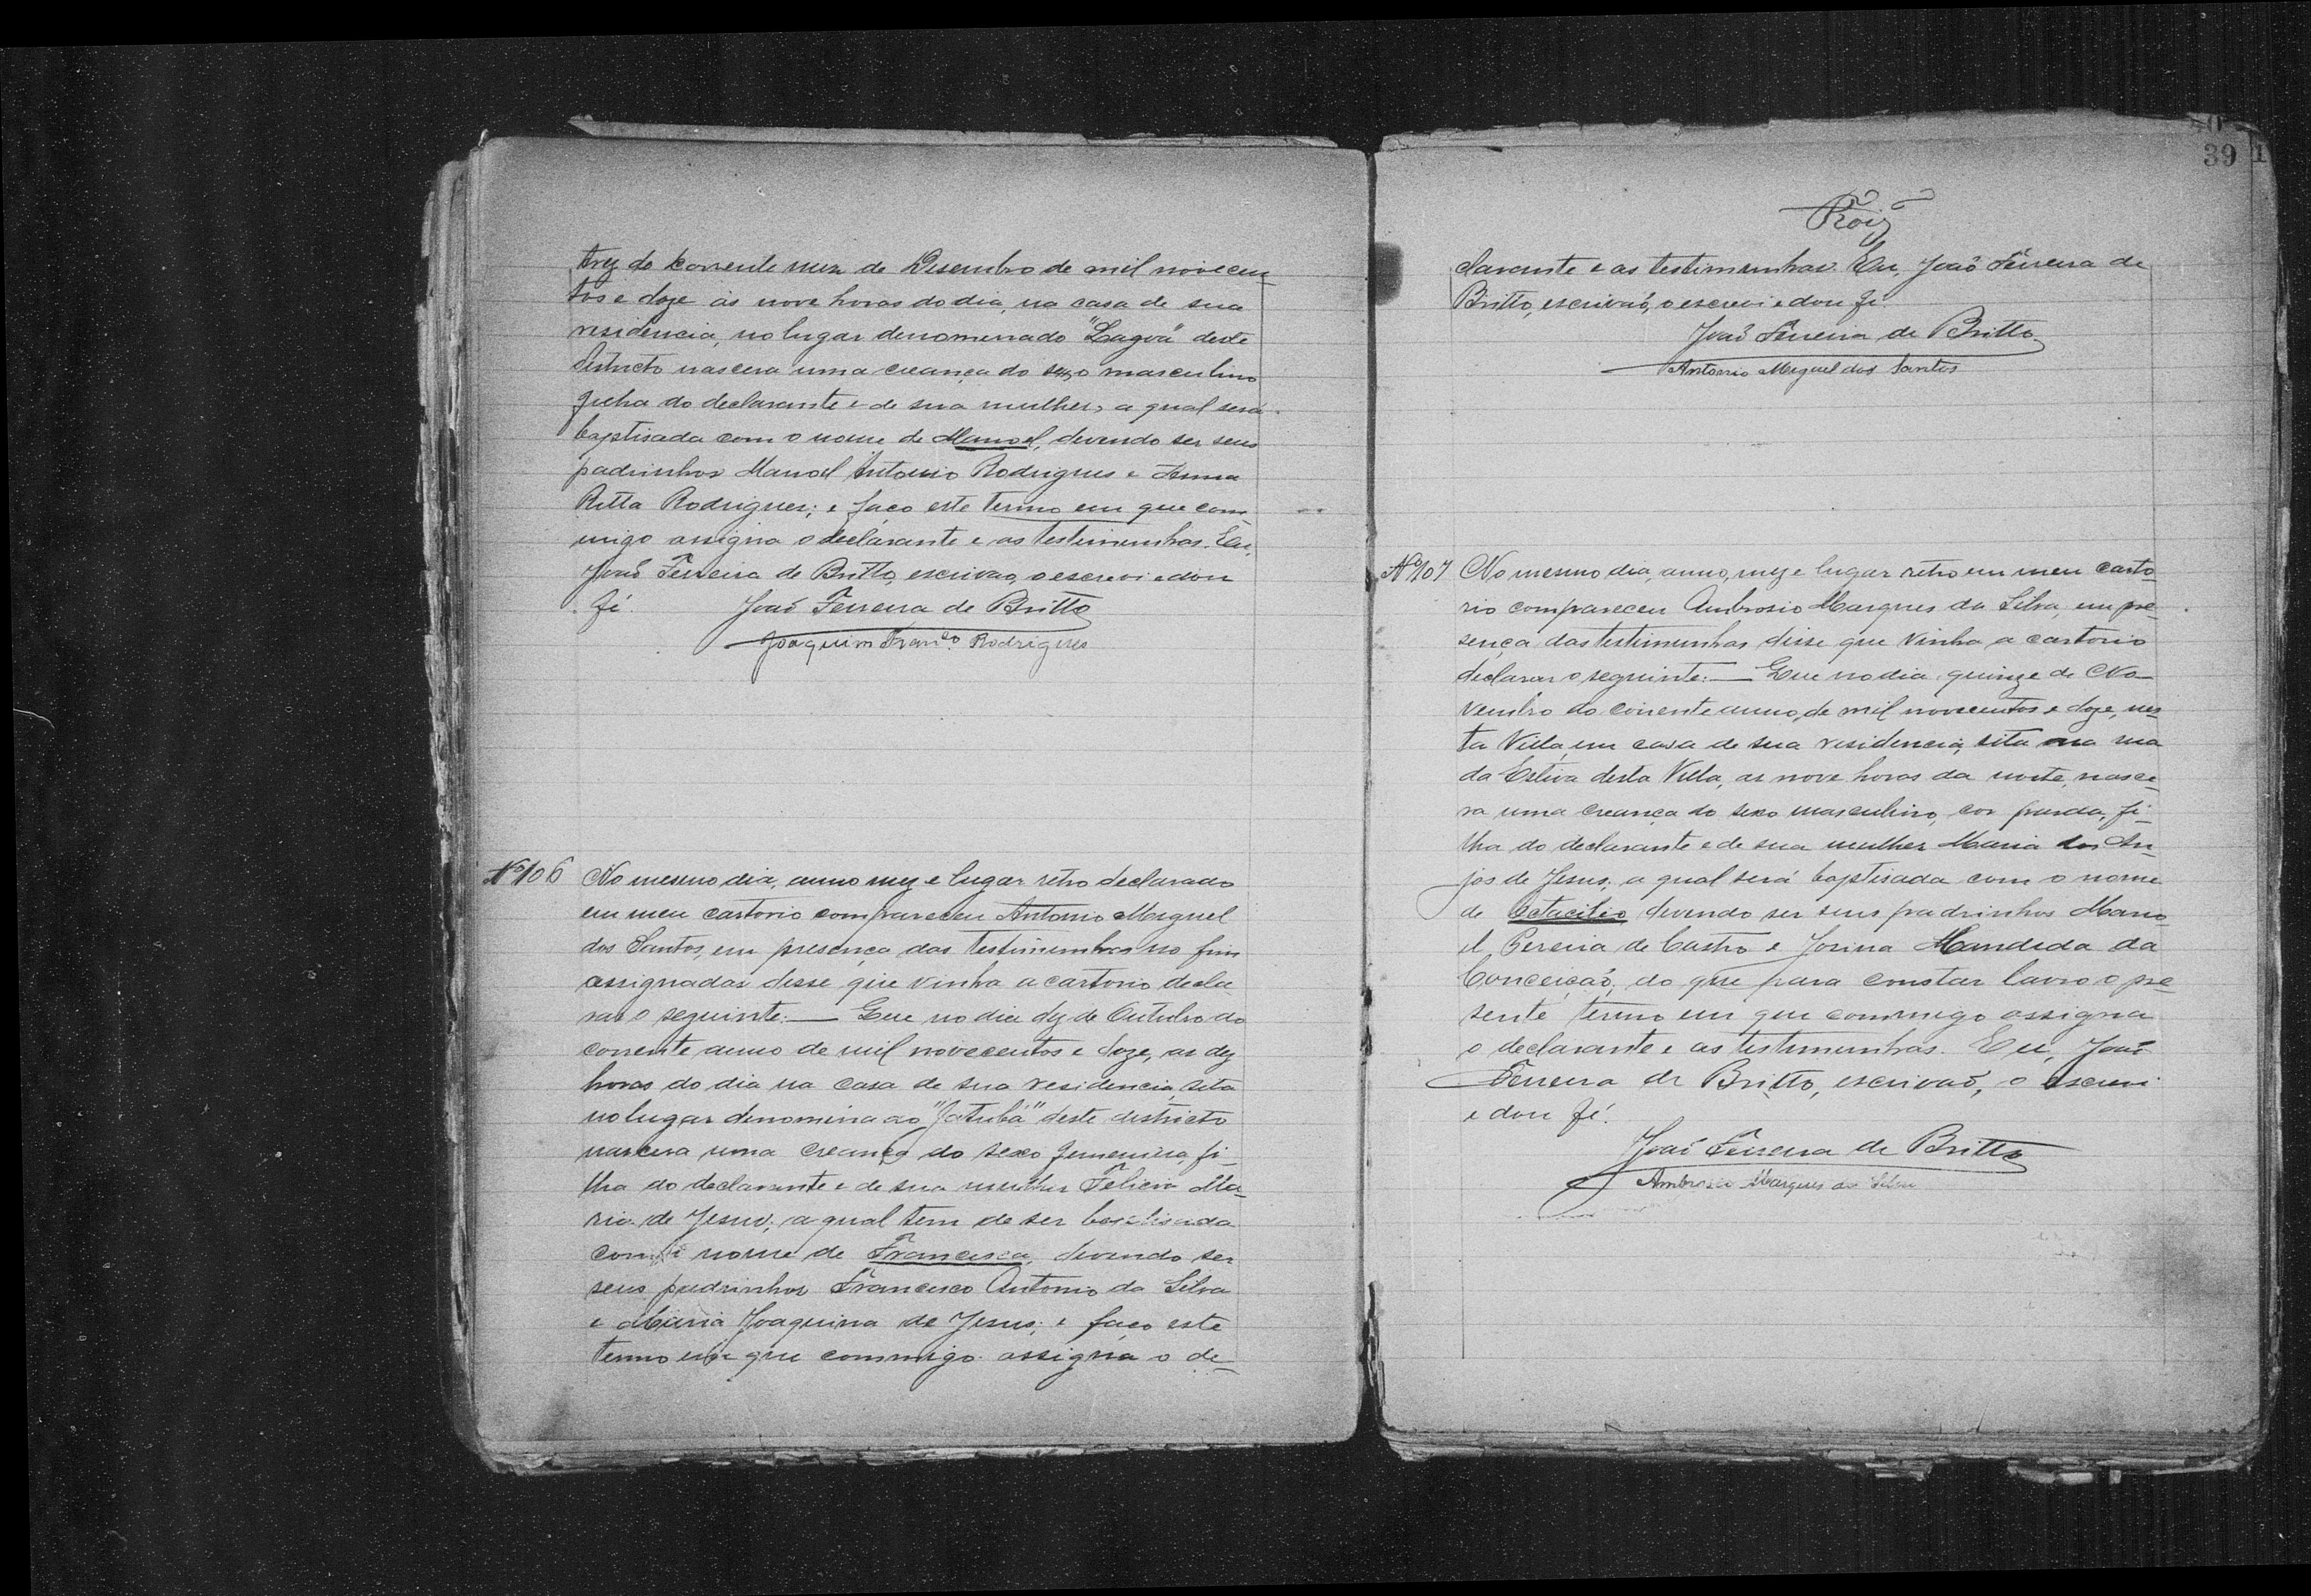 trez do corrente mez de Desembro de mil novecen
tos e doze ás nove horas do dia, na casa de sua
residencia, no lugar denomenado "Lagoa" deste
Destricto nascera uma creança do sexo masculino
filha do declarante e de sua mulher, a qual será
baptisada com o nome de Manoel, devendo ser seus
padrinhos Manoel Antonio Rodrigues e Anna
Ritta Rodrigues; e faço este termo em que com
migo assigna o declarante e as testimunhas. Eu,
João Ferreira de Britto, escrivao, o escrevi e dou
fé. João Ferreira de Britto
Joaquim Franco. Rodrigues
Nº 106 No mesmo dia, anno mez e lugar retro declarado
em meu cartorio compareceu Antonio Miguel
dos Santos, em presença das testimunhas no fim
assignadas disse que vinha a cartorio decla
rar o seguinte:— Que no dia dez de Outubro do
corrente anno de mil novecentos e doze, as dez
horas do dia na casa de sua residencia, sita
no lugar denominado "Jatubá" deste districto
nascera uma creança do sexo femenino, fi-
lha do declarante e de sua mulher Felicia Ma-
ria de Jesus, a qual tem de ser baptisada
com o nome de Francisca, devendo ser
seus padrinhos Francisco Antonio da Silva
e Maria Joaquina de Jesus; e faço este
termo em que commigo assigna o de-
39
Roiz
clarante e as testimunhas. Eu, João Ferreira de
Britto, escrivaõ, o escrevi e dou fé.
João Ferreira de Britto
Antonio Miguel dos Santos
Nº 107 No mesmo dia, anno, mez e lugar retro em meu carto-
rio compareceu Ambrosio Marques da Silva, em pre-
sença das testimunhas disse que vinha a cartorio
declarar o seguinte:— Que no dia quinze de No-
vembro do corrente anno, de mil novecentos e doze, nes-
ta Villa, em casa de sua residencia, sita na rua
da Estiva desta Villa, as nove horas da noite, nasce-
ra uma creança do sexo masculino, cor parda, fi-
lha do declarante e de sua mulher Maria dos An-
jos de Jesus; a qual será baptisada com o nome
de Octacilio, devendo ser seus padrinhos Mano-
el Pereira de Castro e Josina Mandida da
Conceição, do que para constar lavro o pre-
sente termo em que commigo assigna
o declarante e as testimunhas. Eu, João
Ferreira de Britto, escrivaõ, o escrevi
e dou fé.
João Ferreira de Britto
Ambrosio Marques da Silva